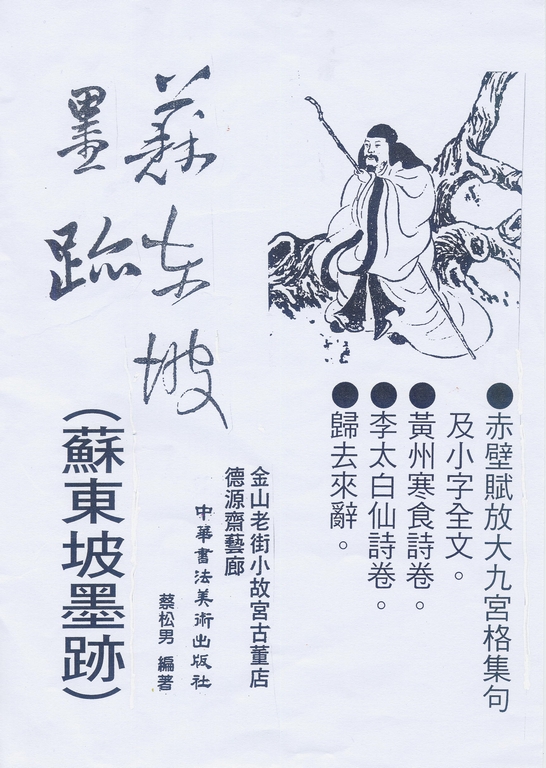 蘇東坡
墨跡
●赤壁賦放大九宮格集句
及小字全文。
●黃州寒食詩卷。
●李太白仙詩卷。
●歸去來辭。
金山老街小故宮古董店
德源齋藝廊
中華書法美術出版社
蔡松男 編著
(蘇東坡墨跡)